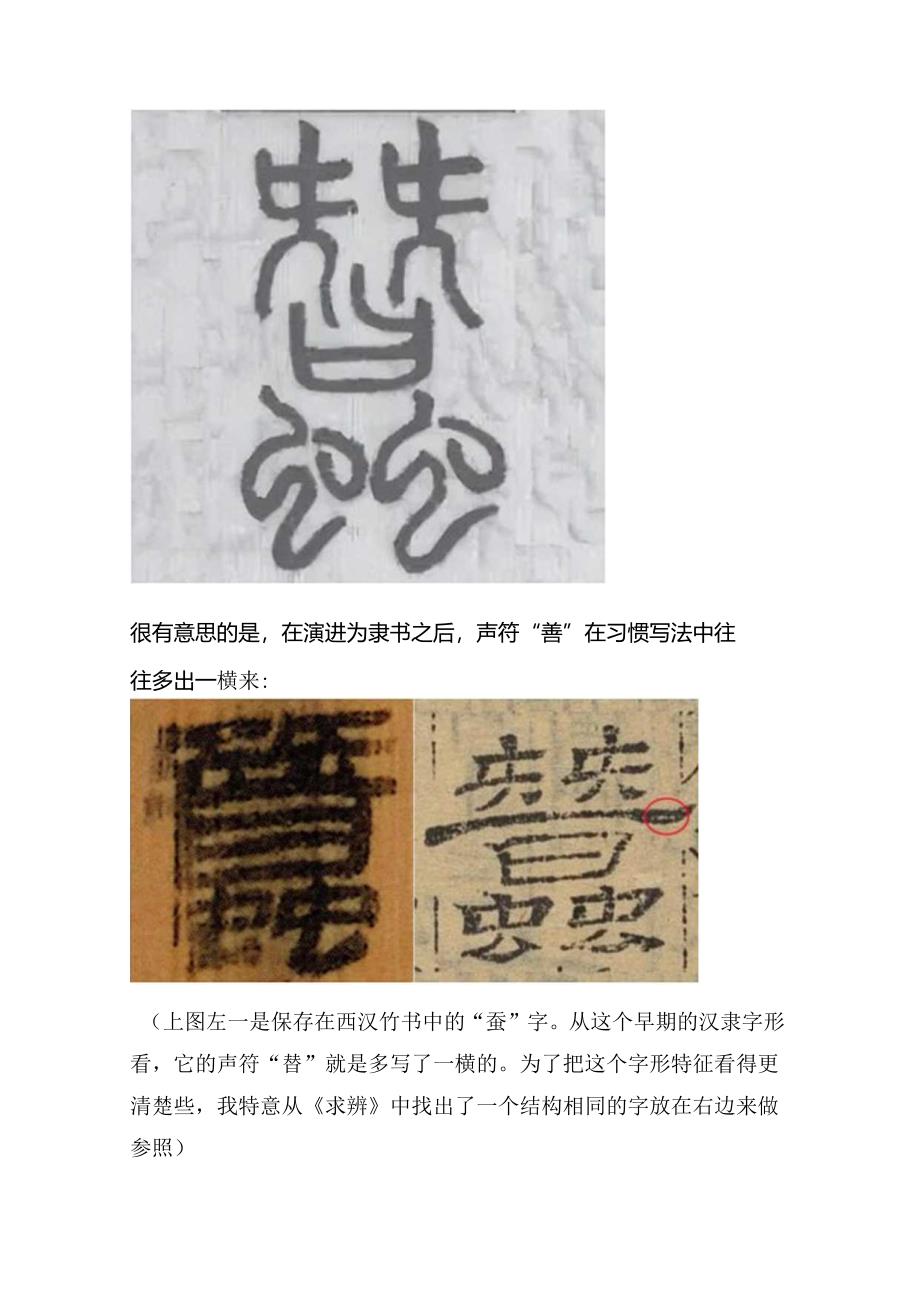 很有意思的是，在演进为隶书之后，声符“善”在习惯写法中往
往多出一横来：
（上图左一是保存在西汉竹书中的“蚕”字。从这个早期的汉隶字形
看，它的声符“替”就是多写了一横的。为了把这个字形特征看得更
清楚些，我特意从《求辨》中找出了一个结构相同的字放在右边来做
参照）